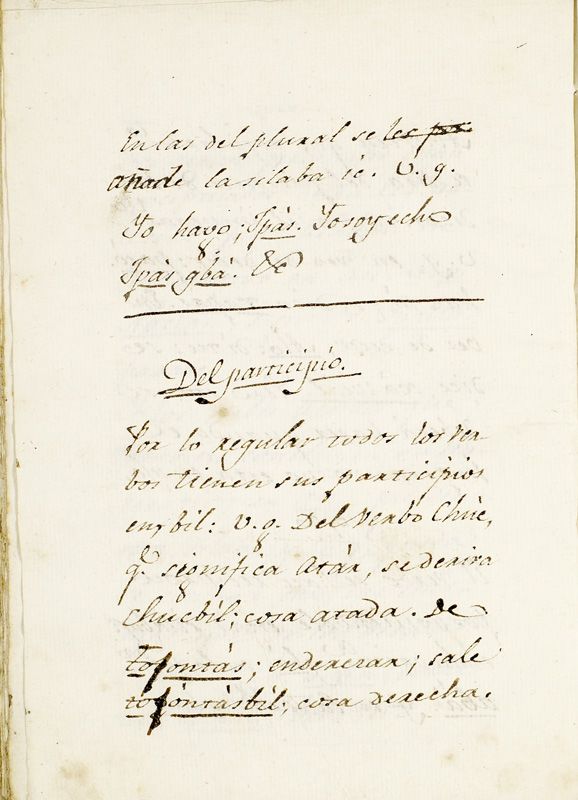 En las del plural se les por
añade la silaba ic. V. g.
Yo hago; Ypàs. Yo soy echo
Ypàs gbà. &c
Del participio.
Por lo regular todos los ver
bos tienen sus participios
en, bil: v.g. Del verbo Chùc,
q.e significa Atàr, se deriva
chucbil; cosa atada. de
tojontàs; enderezar; sale
tojòntàsbil; cosa derecha.